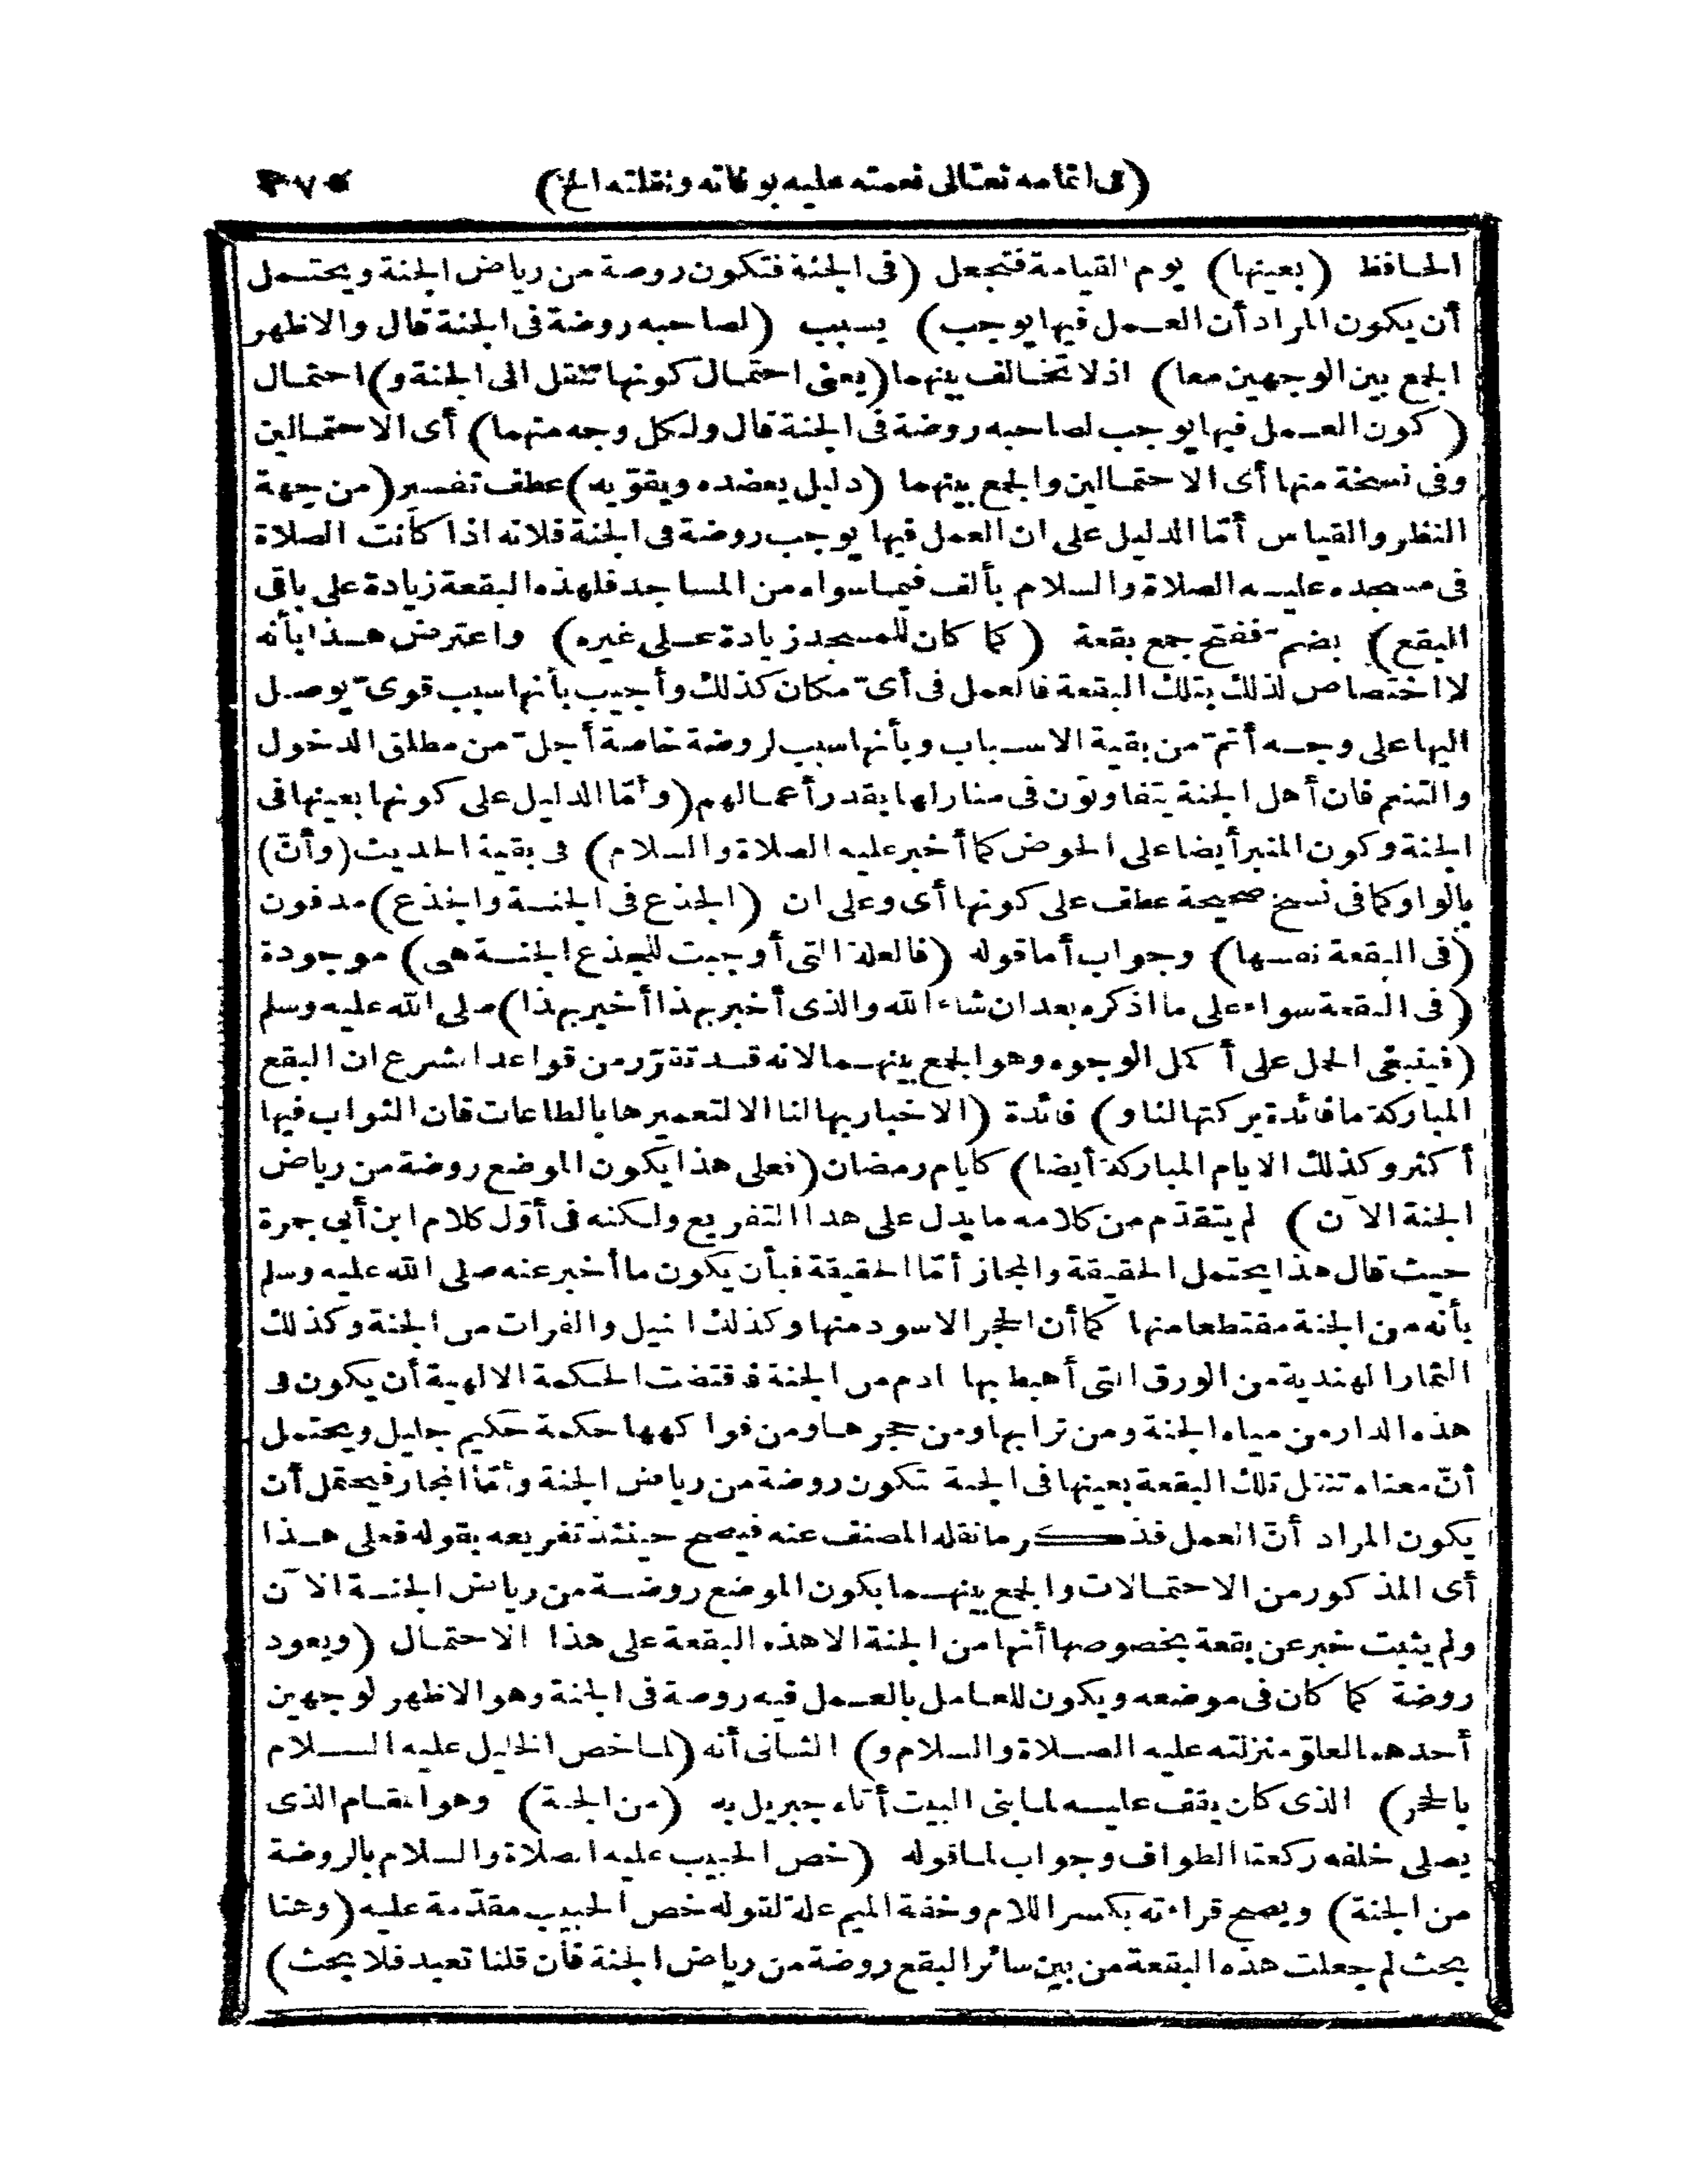 (فى اتمامه تعالى نعمته عليه بوفاته ونقلته الخ) ٣٧٥
الحافظ (بعينها) يوم القيامة فتجعل (فى الجنة فتكون روضة من رياض الجنة ويحتمل
أن يكون المراد أن العمل فيها يوجب) يسبب (لصاحبه روضة فى الجنة قال والاظهر
الجمع بين الوجهين معا) اذ لا تخالف بينهما (يعنى احتمال كونها تنقل الى الجنة و) احتمال
(كون العمل فيها يوجب لصاحبه روضة فى الجنة قال ولكل وجه منهما) أى الاحتمالين
وفى نسخة منها أى الاحتمالين والجمع بينهما (دليل يعضده ويقوّيه) عطف تفسير (من جهة
النظر والقياس أمّا الدليل على ان العمل فيها يوجب روضة فى الجنة فلانه اذا كانت الصلاة
فى مسجده عليه الصلاة والسلام بألف فيما سواه من المساجد فلهذه البقعة زيادة على باقى
البقع) بضمّ ففتح جمع بقعة (كما كان للمسجد زيادة على غيره) واعترض هذا بأنه
لا اختصاص لذلك بتلك البقعة فالعمل فى أىّ مكان كذلك وأجيب بأنها سبب قوىّ يوصل
اليها على وجه أتمّ من بقية الاسباب وبأنها سبب لروضة خاصة أجلّ من مطلق الدخول
والتنعم فان أهل الجنة يتفاوتون فى منازلها بقدر أعمالهم (وأمّا الدليل على كونها بعينها فى
الجنة وكون المنبر أيضا على الحوض كما أخبر عليه الصلاة والسلام) فى بقية الحديث (وأنّ)
بالواو كما فى نسخ صحيحة عطف على كونها أى وعلى ان (الجذع فى الجنة والجذع) مدفون
(فى البقعة نفسها) وجواب أما قوله (فالعلة التى أوجبت للجذع الجنة هى) موجودة
(فى البقعة سواء على ما اذكره بعد ان شاء الله والذى أخبر بهذا أخبر بهذا) صلى الله عليه وسلم
(فينبغى الحمل على أكمل الوجوه وهو الجمع بينهما لانه قد تقرّر من قواعد الشرع ان البقع
المباركة ما فائدة بركتها لنا و) فائدة (الاخبار بها لنا الا لتعميرها بالطاعات فان الثواب فيها
أكثر وكذلك الايام المباركة أيضا) كأيام رمضان (فعلى هذا يكون الموضع روضة من رياض
الجنة الآن) لم يتقدّم من كلامه ما يدل على هذا التفريع ولكنه فى أوّل كلام ابن أبى جمرة
حيث قال هذا يحتمل الحقيقة والمجاز أمّا الحقيقة فبأن يكون ما أخبر عنه صلى الله عليه وسلم
بأنه من الجنة مقتطعا منها كما أن الحجر الاسود منها وكذلك النيل والفرات من الجنة وكذلك
الثمار الهندية من الورق التى أهبط بها ادم من الجنة فاقتضت الحكمة الالهية أن يكون فى
هذه الدار من مياه الجنة ومن ترابها ومن حجرها ومن فواكهها حكمة حكيم جليل ويحتمل
أنّ معناه تنقل تلك البقعة بعينها فى الجنة تكون روضة من رياض الجنة وأمّا المجاز فيحتمل أن
يكون المراد أنّ العمل فذكر ما نقله المصنف عنه فيصح حينئذ تفريعه بقوله فعلى هذا
أى المذكور من الاحتمالات والجمع بينهما يكون الموضع روضة من رياض الجنة الآن
ولم يثبت خبر عن بقعة بخصوصها أنها من الجنة الا هذه البقعة على هذا الاحتمال (ويعود
روضة كما كان فى موضعه ويكون للعامل بالعمل فيه روضة فى الجنة وهو الاظهر لوجهين
أحدهما لعلوّ منزلته عليه الصلاة والسلام و) الثانى أنه (لما خص الخليل عليه السلام
بالحجر) الذى كان يقف عليه لما بنى البيت أتاه جبريل به (من الجنة) وهو المقام الذى
يصلى خلفه ركعتا الطواف وجواب لما قوله (خص الحبيب عليه الصلاة والسلام بالروضة
من الجنة) ويصح قراءته بكسر اللام وخفة الميم علة لقوله خص الحبيب مقدّمة عليه (وهنا
بحث لم جعلت هذه البقعة من بين سائر البقع روضة من رياض الجنة فان قلنا تعبد فلا بحث)